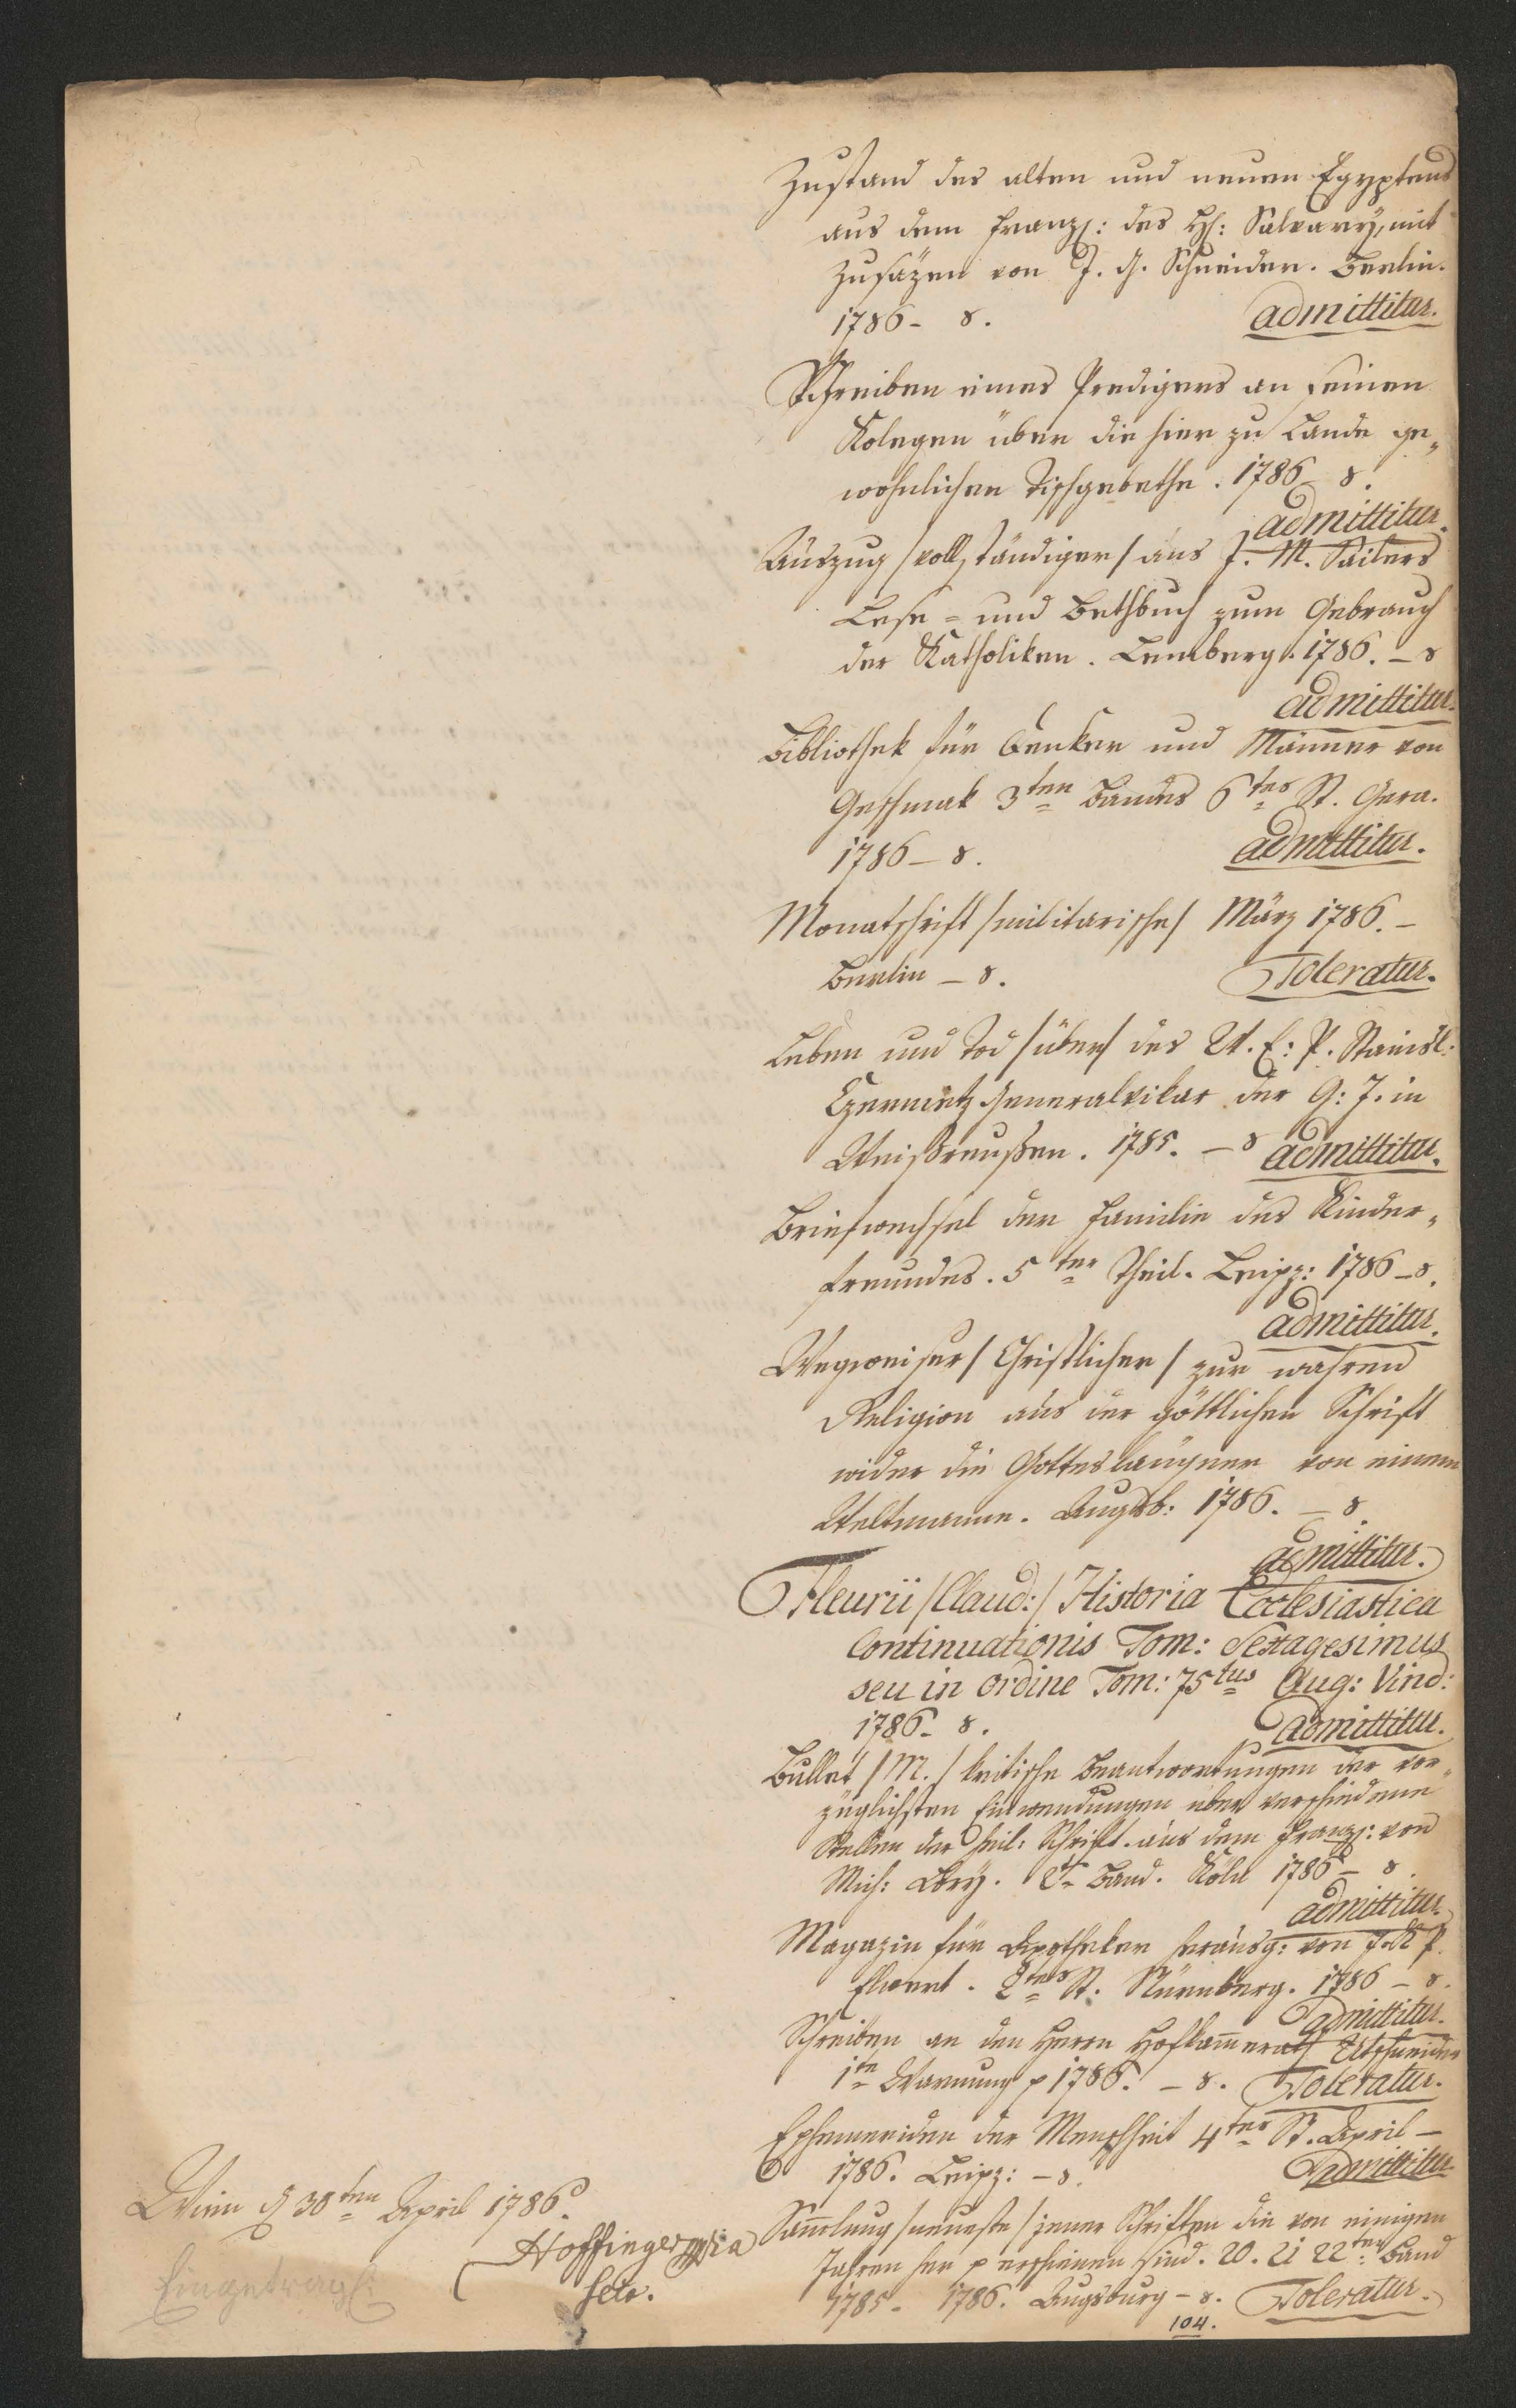 Zustand des alten und neuen Egyptens
aus dem Französ: des H: Salvary, mit
Zusäzen von J. G. Schneider. Berlin.
1786 - 8. admittitur.
Schreiben eines Predigers an seinen
Kolegen über die hier zu Lande ge„
wohnlichen Tischgebethe. 1786 8.
admittitur.
Auszug /vollständiger/ aus J. M. Sailers
Lese- und Bethbuch zum Gebrauch
der Katholiken. Lemberg. 1786. - 8
admittitur.
Bibliothek für Denker und Männer von
Geschmak 3ten Bandes 6tes St. Gera.
1786 - 8. admittitur.
Monatschrift /militarische/ März 1786. -
Berlin - 8. Toleratur.
Leben und Tod /über/ des P. Stanisl:
Generalvikar der G: J. in
Weißreußen. 1785. - 8 admittitur.
Briefwechsel der Familie des Kinder„
freundes. 5ter Theil. Leipz: 1786 - 8.
admittitur.
Wegweiser /Christlicher/ zur wahren
Religion aus der göttlichen Schrift
wider die Gottesläugner von einem
Weltmanne. Augsb: 1786. - 8.
admittitur.
Fleurii /Claud:/ Historia Ecclesiastica
Continuationis Tom: Sextagesimus
seu in ordine Tom: 75tus Aug: Vind:
1786 - 8. admittitur.
Bullet /M./ kritische Beantwortungen der vor„
züglichsten Einwendungen über verschiedene
Stellen der heil: Schrift. aus dem Franz: von
Mich: Band. Köln 1786 - 8.
admittitur.
Magazin für Apotheker herausg: von J. K. P.
Elwert. 2tes St. Nürnberg. 1786 - 8.
admittitur.
Schreiben an den Herrn Hofkam̄errath Utschneider
1te Warnung p 1786. - 8. Toleratur.
Ephemeriden der Menschheit 4tes St. April -
1786. Leipz: - 8. Admittitur
Sam̄lung /neueste/ jener Schriften die von einigen
Jahren her p erschienen sind. 20. 21 22ter Band
1785 - 1786. Augsburg - 8. Toleratur.
104.
Wien d 30ten April 1786.
Hoffinger mpia
Secr.
Eingetragen